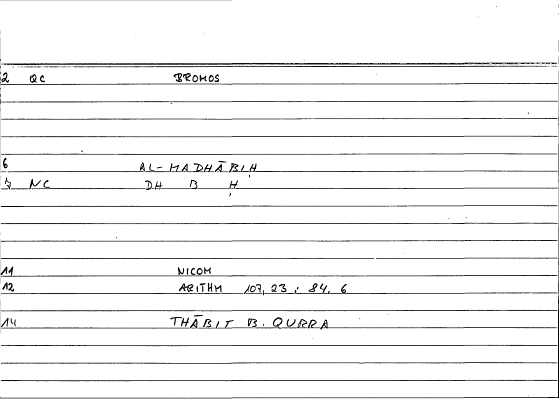 2 QC BROMOS
6 AL-MADHĀBIḤ
NC DH B Ḥ
11 NICOM
12 ARITHM 107, 23 ; 84. 6
14 THĀBIT B. QURRA